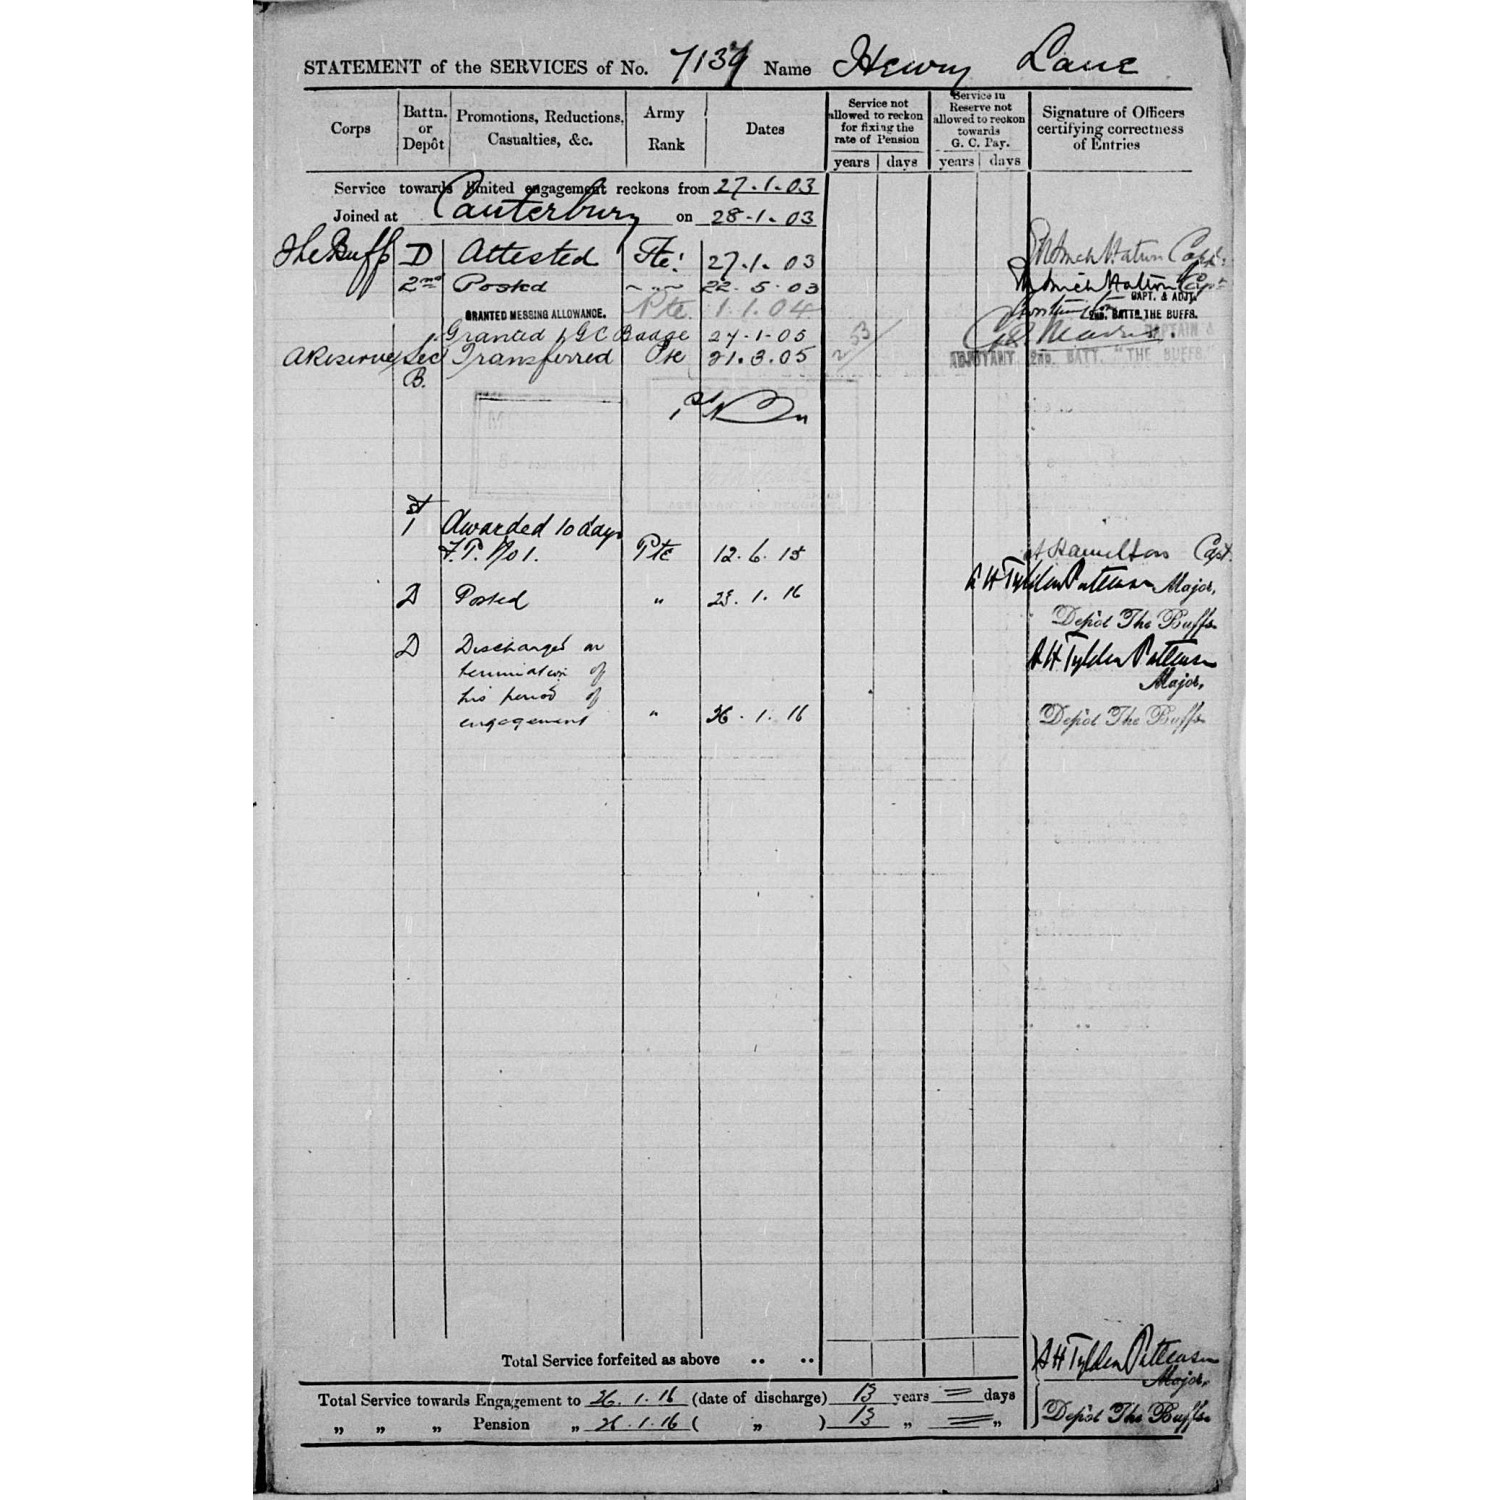 STATEMENT of the SERVICES of No. 7139 Name Henry Lane
Corps
Battn. or Depôt
Promotions, Reductions, Casualties, &c.
Army Rank
Dates
Service not allowed to reckon for fixing the rate of Pension
years days
Service in Reserve not allowed to reckon towards G. C. Pay.
years days
Signature of Officers certifying correctness of Entries
Service towards limited engagement reckons from 27.1.03
Joined at Canterbury on 28.1.03
The Buffs D Attested Pte: 27.1.03 Capt
2nd Posted 22.5.03 Capt
CAPT. & ADJT.
GRANTED MESSING ALLOWANCE. Pte. 1.1.04 2ND. BATTN. THE BUFFS.
Granted 1 GC Badge 27.1.05 CAPTAIN &
A Reserve Sec Transferred Pte 21.3.05 ADJUTANT 2ND. BATT. "THE BUFFS."
B.
1st Awarded 10 days
F.P. No 1. Pte 12.6.15 Hamilton Capt.
D Posted " 23.1.16 A H Tylden Pattenson Major,
Depôt The Buffs
D Discharged on A H Tylden Pattenson
termination of Major,
his period of
engagement " 26.1.16 Depôt The Buffs
Total Service forfeited as above .. .. A H Tylden Pattenson
Major,
Total Service towards Engagement to 26.1.16 (date of discharge) 13 years = days
" " " Pension " 26.1.16 ( " ) 13 " = " Depôt The Buffs